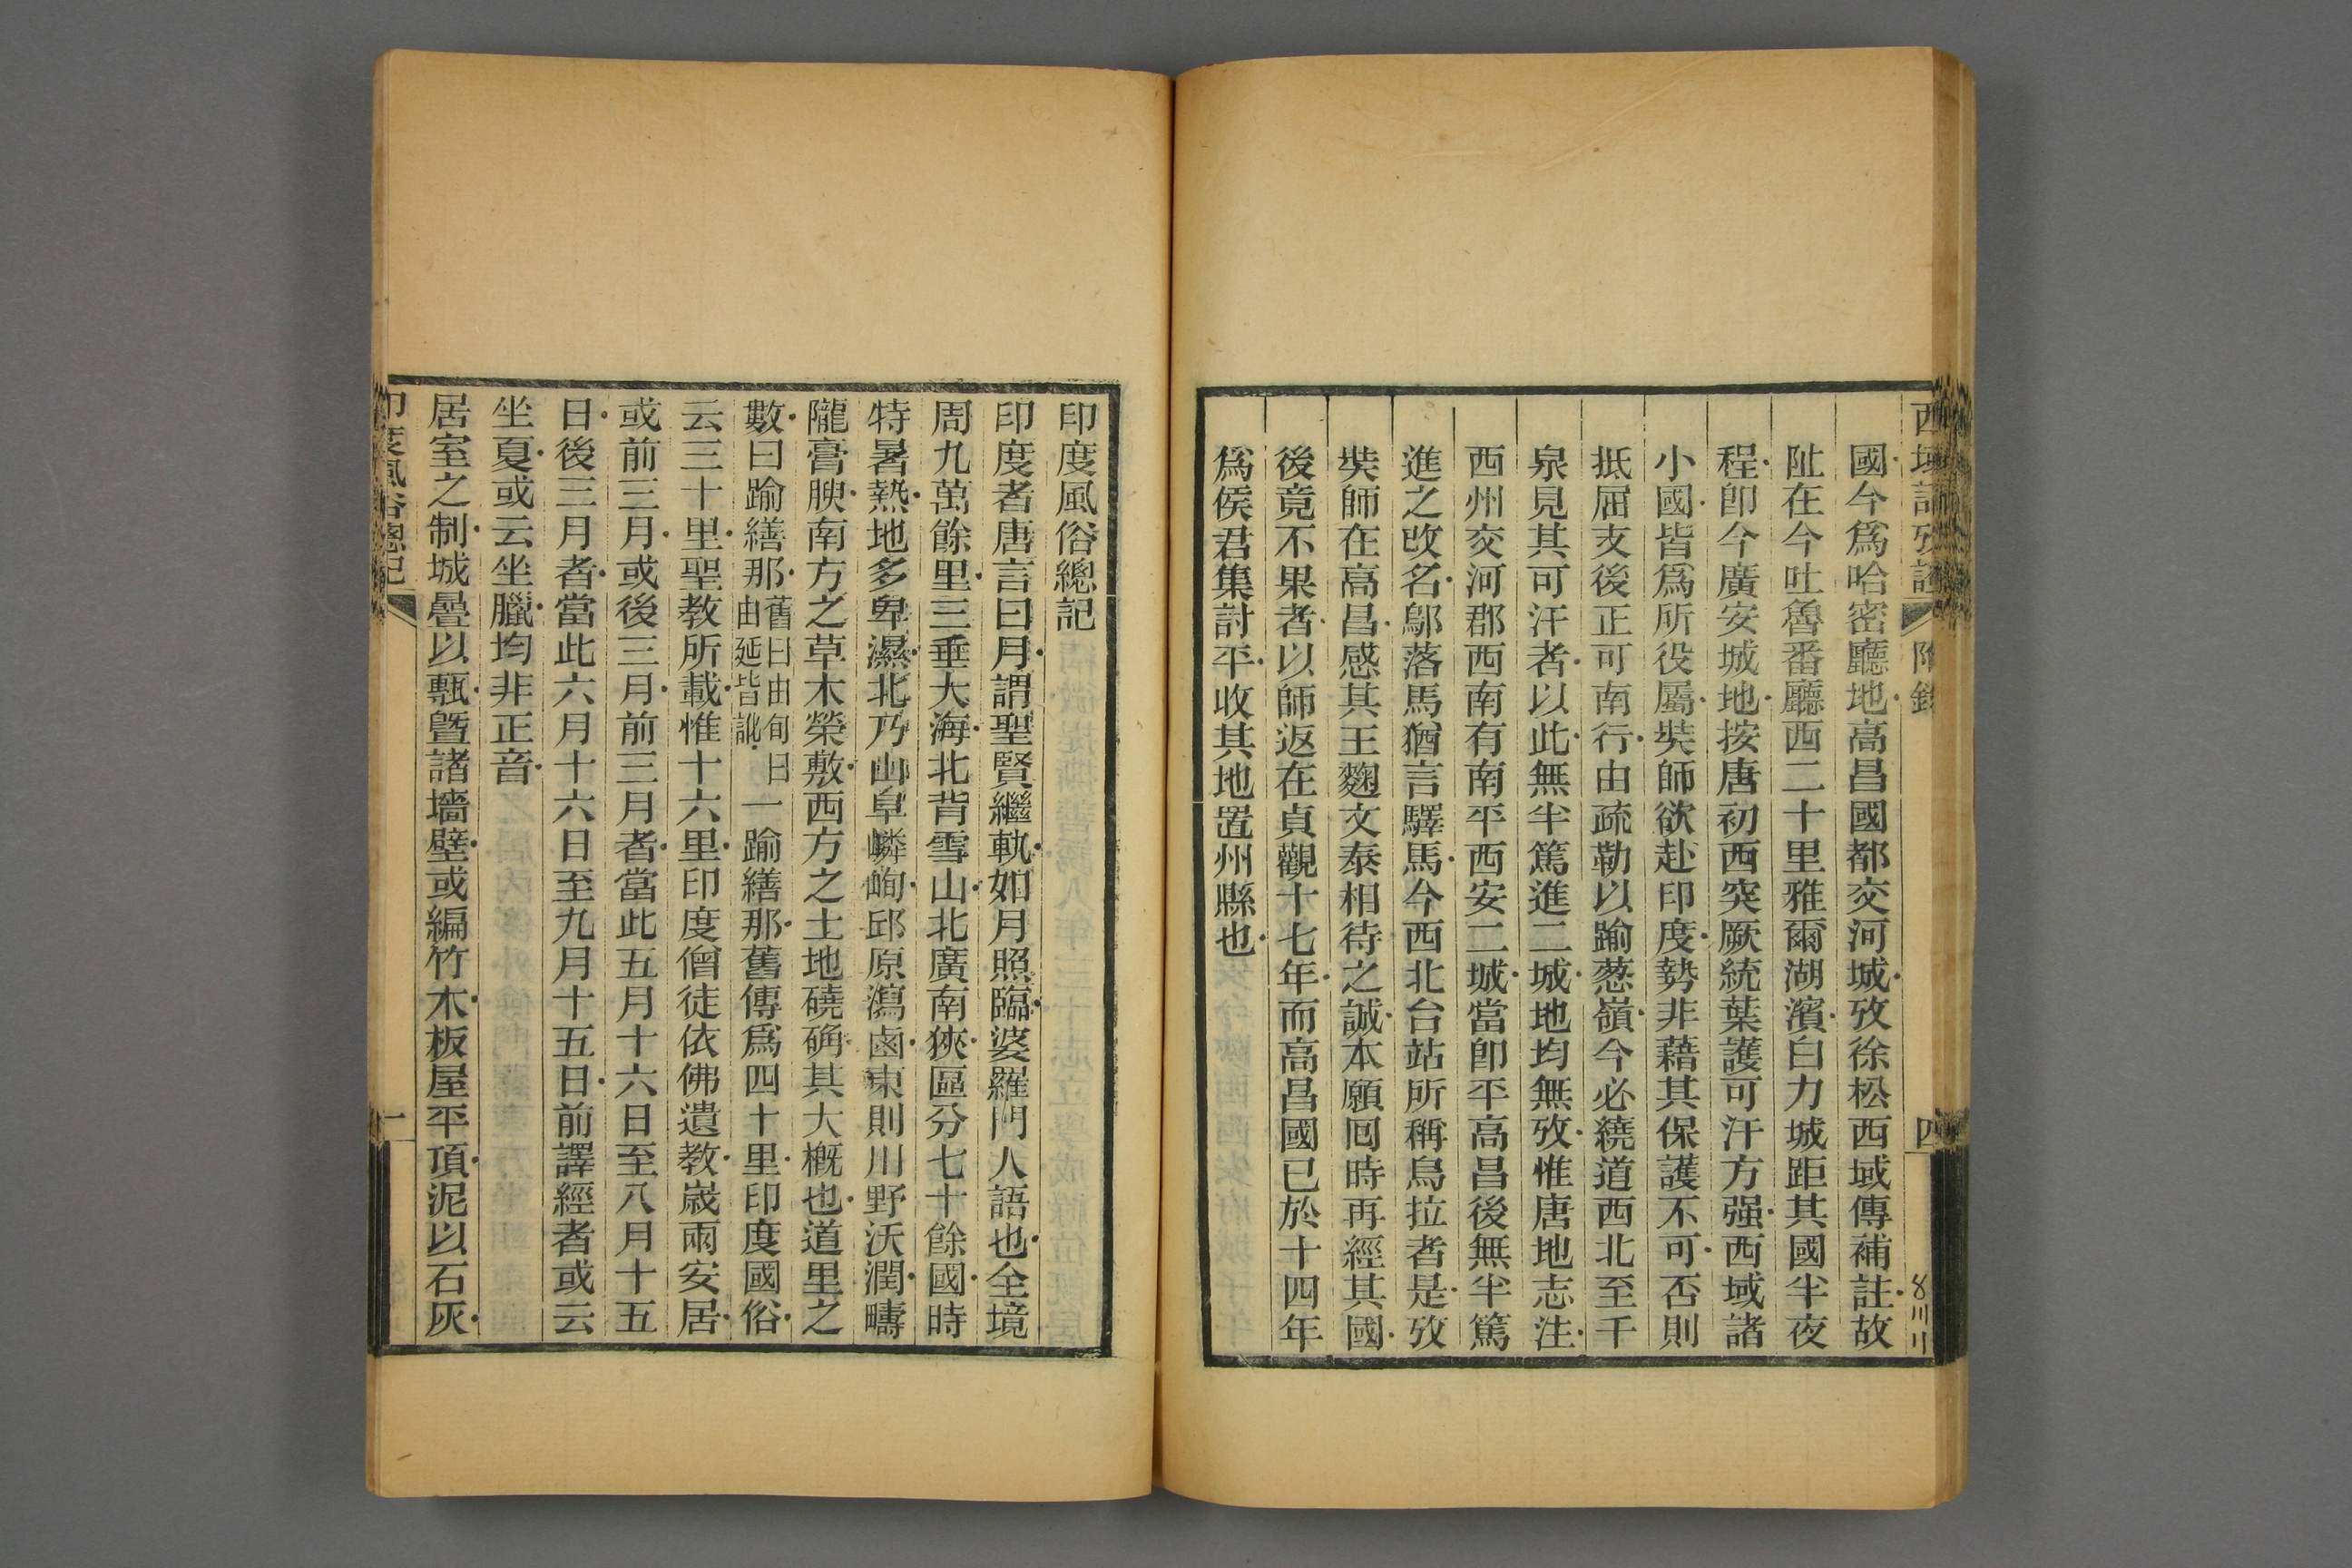 西域記攷證 附錄 四
國今爲哈密廳地高昌國都交河城攷徐松西域傳補註故
阯在今吐魯番廳西二十里雅爾湖濱白力城距其國半夜
程卽今廣安城地按唐初西突厥統葉護可汗方强西域諸
小國皆爲所役屬奘師欲赴印度勢非藉其保護不可否則
抵屈支後正可南行由疏勒以踰葱嶺今必繞道西北至千
泉見其可汗者以此無半篤進二城地均無攷惟唐地志注
西州交河郡西南有南平西安二城當卽平高昌後無半篤
進之改名鄔落馬猶言驛馬今西北台站所稱烏拉者是攷
奘師在高昌感其王麴文泰相待之誠本願回時再經其國
後竟不果者以師返在貞觀十七年而高昌國已於十四年
爲侯君集討平收其地置州縣也
印度風俗總記
印度者唐言曰月謂聖賢繼軌如月照臨婆羅門人語也全境
周九萬餘里三垂大海北背雪山北廣南狹區分七十餘國時
特暑熱地多卑濕北乃山阜嶙峋邱原潟鹵東則川野沃潤疇
隴膏腴南方之草木榮敷西方之土地磽确其大概也道里之
數曰踰繕那舊曰由旬曰由延皆訛一踰繕那舊傳爲四十里印度國俗
云三十里聖教所載惟十六里印度僧徒依佛遺教歲雨安居
或前三月或後三月前三月者當此五月十六日至八月十五
日後三月者當此六月十六日至九月十五日前譯經者或云
坐夏或云坐臘均非正音
居室之制城疊以甎曁諸墻壁或編竹木板屋平頂泥以石灰
印度風俗總記 一